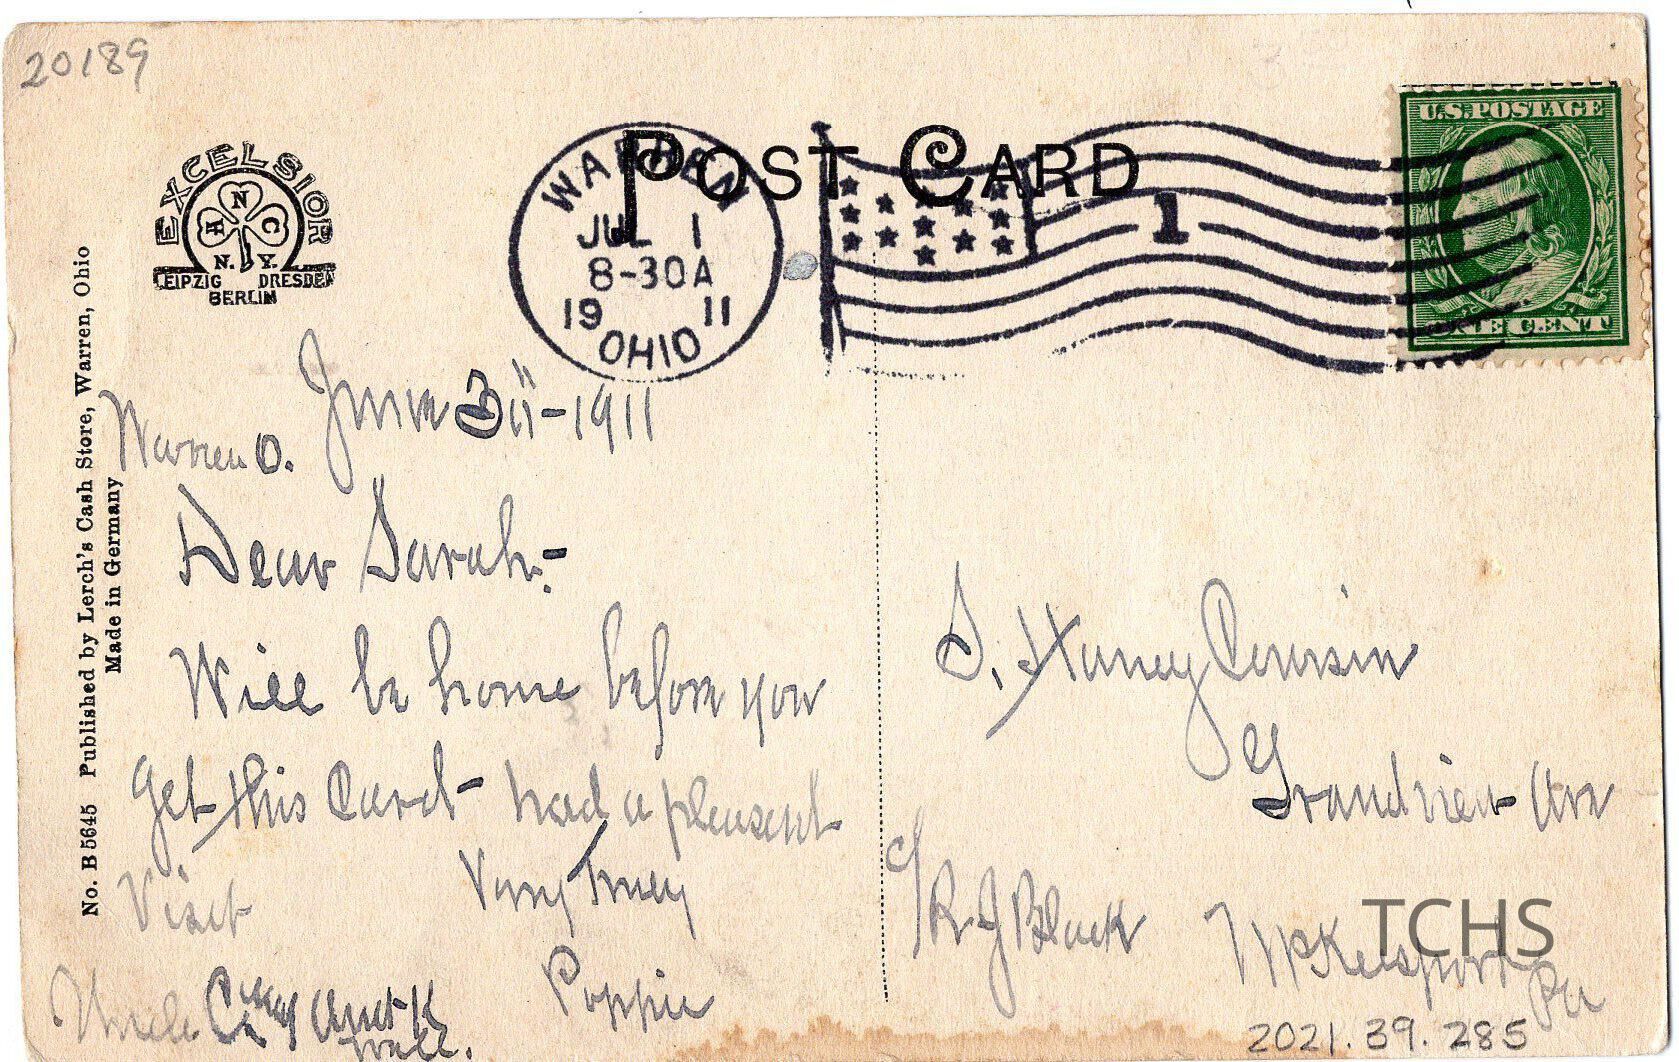 20189
EXCELSIOR
H N C
N.Y.
LEIPZIG DRESDEN
BERLIN
No. B 5645 Published by Lerch's Cash Store, Warren, Ohio
Made in Germany
POST CARD
WARREN
JUL 1
8-30A
1911
OHIO
1
U.S. POSTAGE
ONE CENT
Warren O. June 30-1911
Dear Sarah:-
Will be home before you
get this Card- had a pleasant
Visit
Very Truly
Poppie
Uncle Aunt K
well.
S. Haney Coursin
Grandview Ave
C/ R J Black
McKeesport
Pa
TCHS
2021.39.285